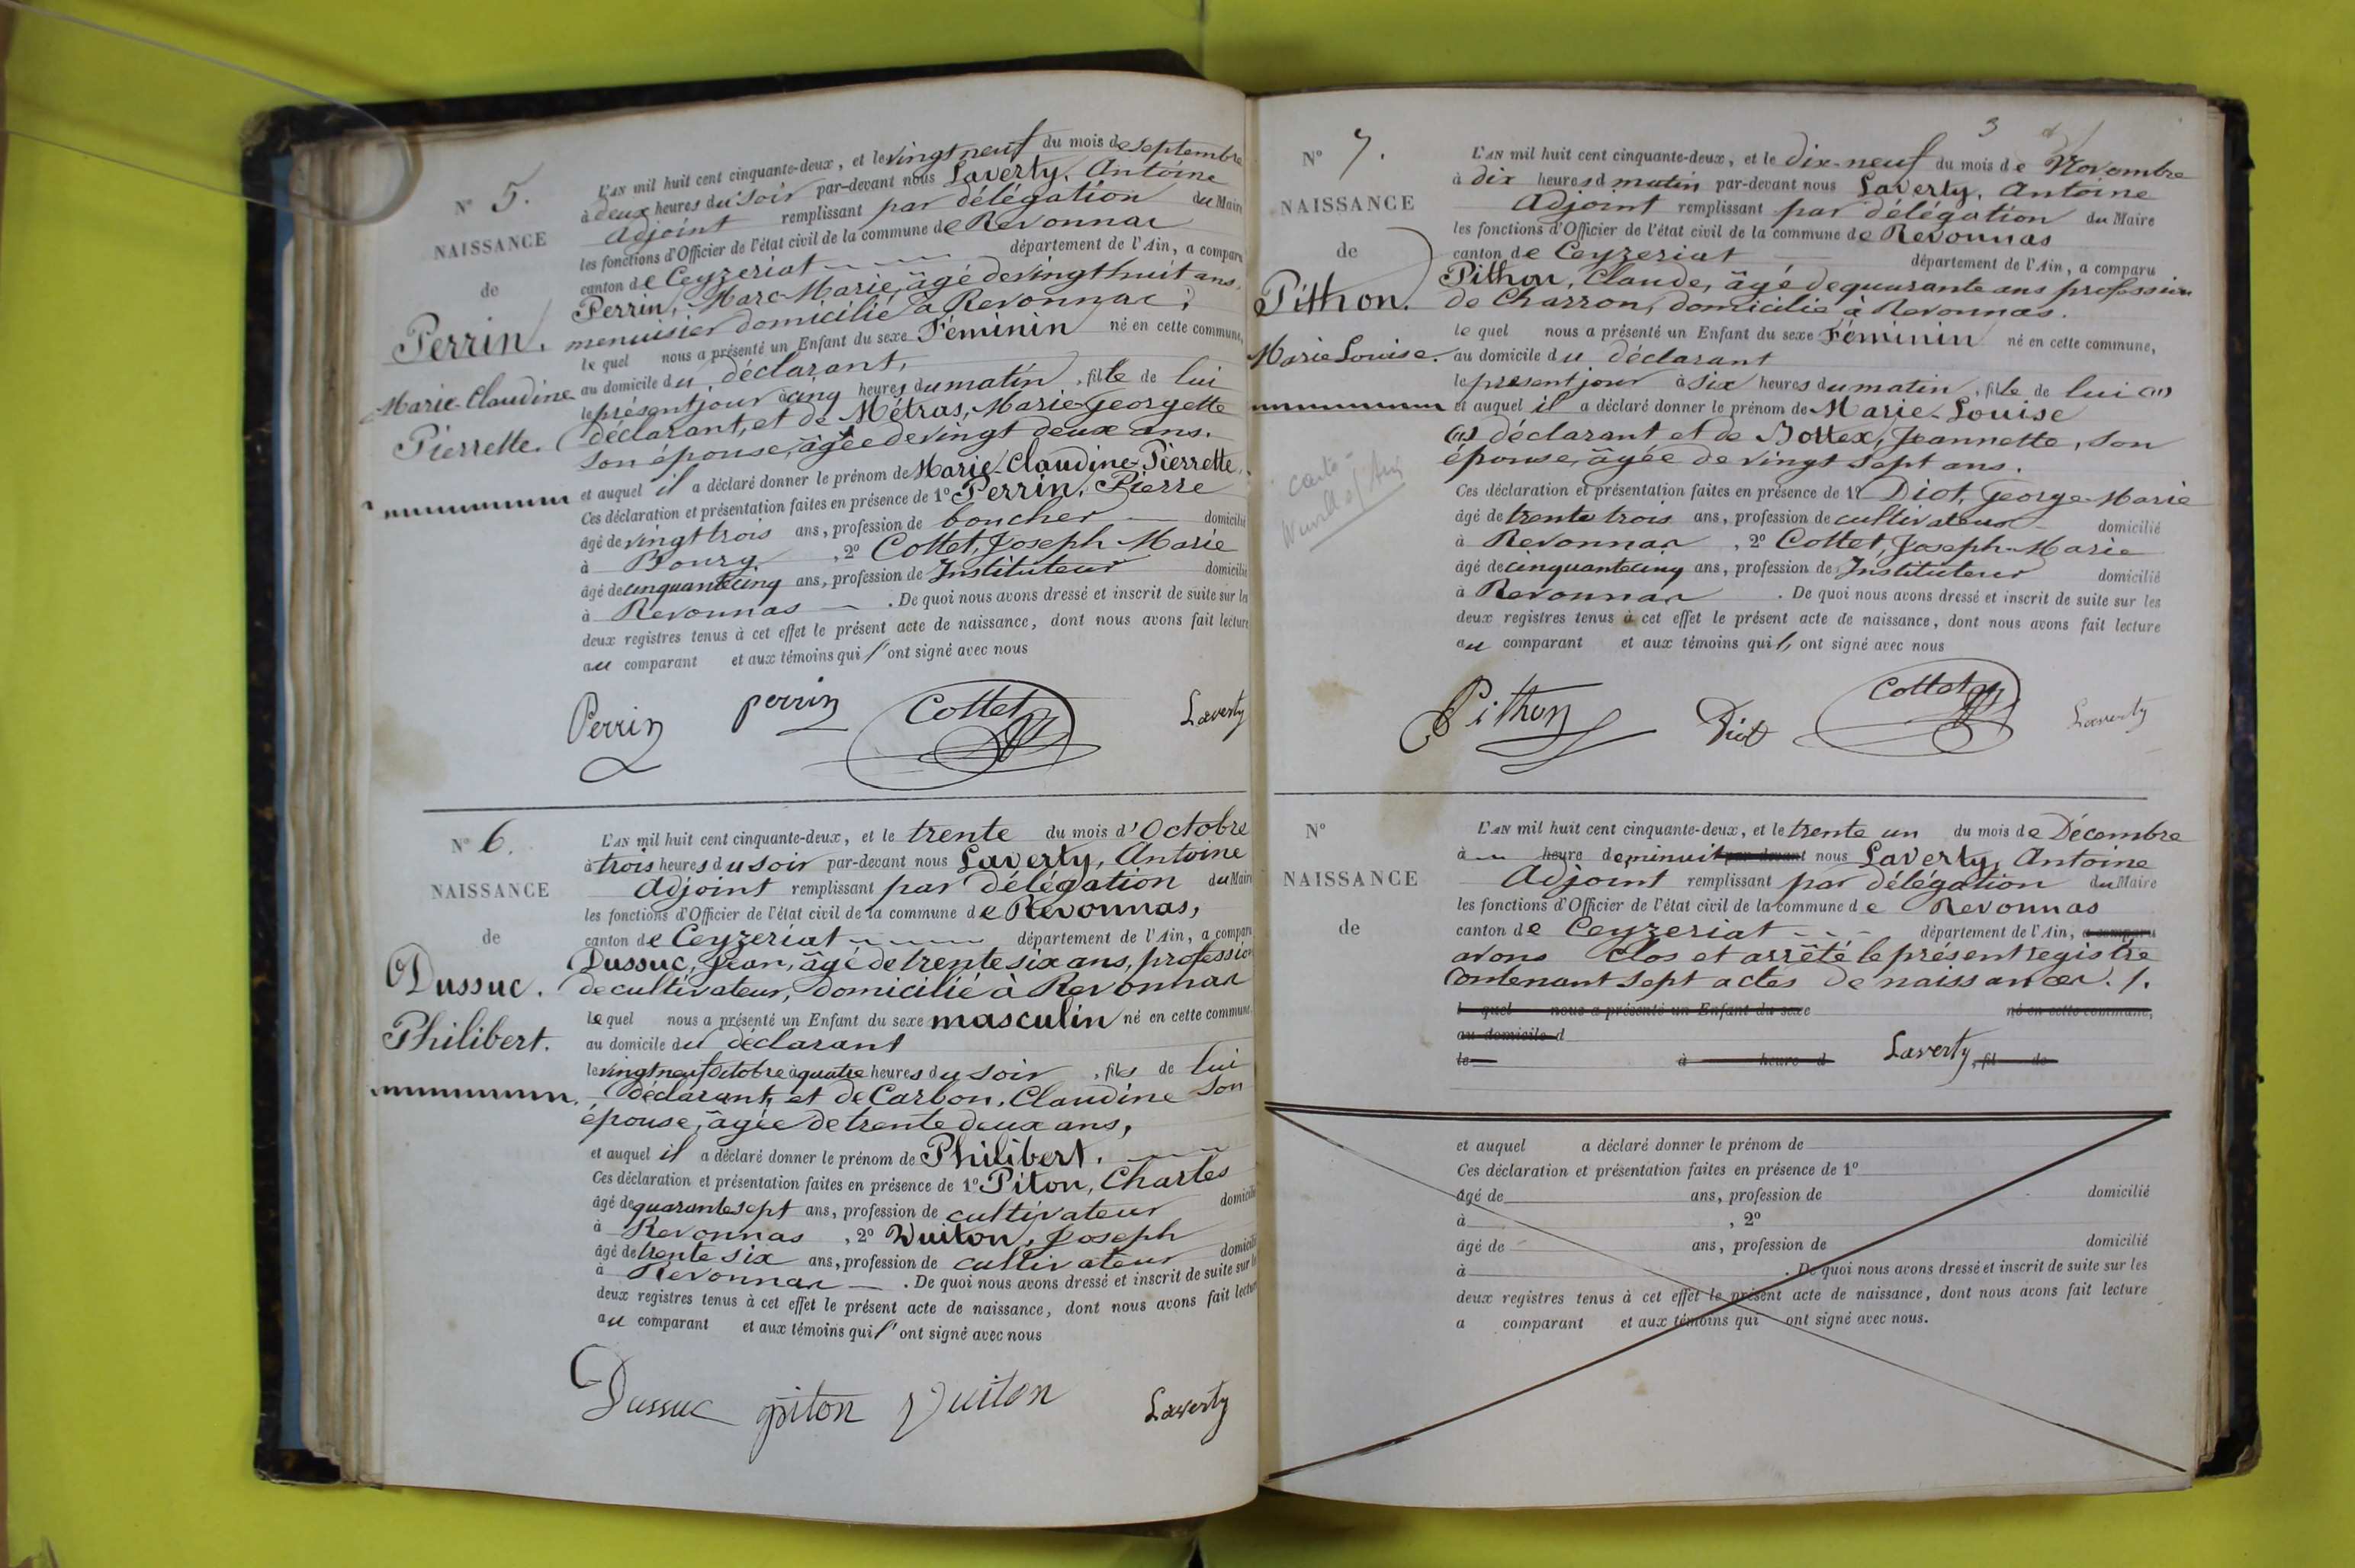 N° 5.
NAISSANCE
de
Perrin.
Marie-Claudine
Pierrette.
L'AN mil huit cent cinquante-deux, et le vingt neuf du mois de septembre
à deux heures du soir par-devant nous Laverty, Antoine
Adjoint remplissant par délégation du Maire
les fonctions d'Officier de l'état civil de la commune de Revonnas
canton de Ceyzeriat département de l'Ain, a comparu
Perrin, Marc-Marie, âgé de vingt huit ans,
menuisier domicilié à Revonnas;
lequel nous a présenté un Enfant du sexe Féminin né en cette commune,
au domicile du déclarant,
le présent jour à cinq heures du matin, fille de lui
déclarant, et de Métras, Marie-Georgette
son épouse, âgée de vingt deux ans.
et auquel il a déclaré donner le prénom de Marie-Claudine-Pierrette.
Ces déclaration et présentation faites en présence de 1° Perrin, Pierre
âgé de vingt trois ans, profession de boucher domicilié
à Bourg, 2° Cottet, Joseph-Marie
âgé de cinquante cinq ans, profession de Instituteur domicilié
à Revonnas. De quoi nous avons dressé et inscrit de suite sur les
deux registres tenus à cet effet le présent acte de naissance, dont nous avons fait lecture
au comparant et aux témoins qui l'ont signé avec nous
Perrin perrin Cottet Laverty
N° 6.
NAISSANCE
de
Dussuc.
Philibert.
L'AN mil huit cent cinquante-deux, et le trente du mois d'Octobre
à trois heures du soir par-devant nous Laverty, Antoine
Adjoint remplissant par délégation du Maire
les fonctions d'Officier de l'état civil de la commune de Revonnas,
canton de Ceyzeriat département de l'Ain, a comparu
Dussuc, Jean, âgé de trente six ans, profession
de cultivateur, domicilié à Revonnas
lequel nous a présenté un Enfant du sexe masculin né en cette commune
au domicile du déclarant
le vingt neuf Octobre à quatre heures du soir, fils de lui
déclarant, et de Carbon, Claudine son
épouse, âgée de trente deux ans,
et auquel il a déclaré donner le prénom de Philibert.
Ces déclaration et présentation faites en présence de 1° Piton, Charles
âgé de quarante sept ans, profession de cultivateur domicilié
à Revonnas, 2° Vuiton, Joseph
âgé de trente six ans, profession de cultivateur domicilié
à Revonnas. De quoi nous avons dressé et inscrit de suite sur les
deux registres tenus à cet effet le présent acte de naissance, dont nous avons fait lecture
au comparant et aux témoins qui l'ont signé avec nous
Dussuc piton Vuiton Laverty
3
N° 7.
NAISSANCE
de
Pithon.
Marie Louise.
L'AN mil huit cent cinquante-deux, et le dix-neuf du mois de Novembre
à dix heures d matin par-devant nous Laverty, Antoine
Adjoint remplissant par délégation du Maire
les fonctions d'Officier de l'état civil de la commune de Revonnas
canton de Ceyzeriat département de l'Ain, a comparu
Pithon, Claude, âgé de quarante ans profession
de Charron, domicilié à Revonnas.
lequel nous a présenté un Enfant du sexe Féminin né en cette commune,
au domicile du déclarant
le présent jour à six heures du matin, fille de lui (1)
et auquel il a déclaré donner le prénom de Marie-Louise
(1) déclarant et de Bottex, Jeannette, son
épouse, âgée de vingt sept ans.
Ces déclaration et présentation faites en présence de 1° Diot, George-Marie
âgé de trente trois ans, profession de cultivateur domicilié
à Revonnas, 2° Cottet, Joseph-Marie
âgé de cinquante cinq ans, profession de Instituteur domicilié
à Revonnas. De quoi nous avons dressé et inscrit de suite sur les
deux registres tenus à cet effet le présent acte de naissance, dont nous avons fait lecture
au comparant et aux témoins qui l'ont signé avec nous
Pithon Diot Cottet Laverty
N°
NAISSANCE
de
L'AN mil huit cent cinquante-deux, et le trente un du mois de Décembre
à heure de minuit par-devant nous Laverty, Antoine
Adjoint remplissant par délégation du Maire
les fonctions d'Officier de l'état civil de la commune de Revonnas
canton de Ceyzeriat département de l'Ain, a comparu
avons clos et arrêté le présent registre
contenant sept actes de naissances. /.
l quel nous a présenté un Enfant du sexe né en cette commune,
au domicile d
le à heure d Laverty, fil de
et auquel a déclaré donner le prénom de
Ces déclaration et présentation faites en présence de 1°
âgé de ans, profession de domicilié
à , 2°
âgé de ans, profession de domicilié
à . De quoi nous avons dressé et inscrit de suite sur les
deux registres tenus à cet effet le présent acte de naissance, dont nous avons fait lecture
a comparant et aux témoins qui ont signé avec nous.